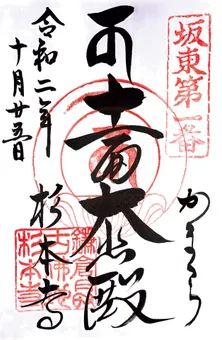 坂東第一番
かまくら
十一面大悲殿
杉本寺
令和二年
十月廿五日
杉本寺